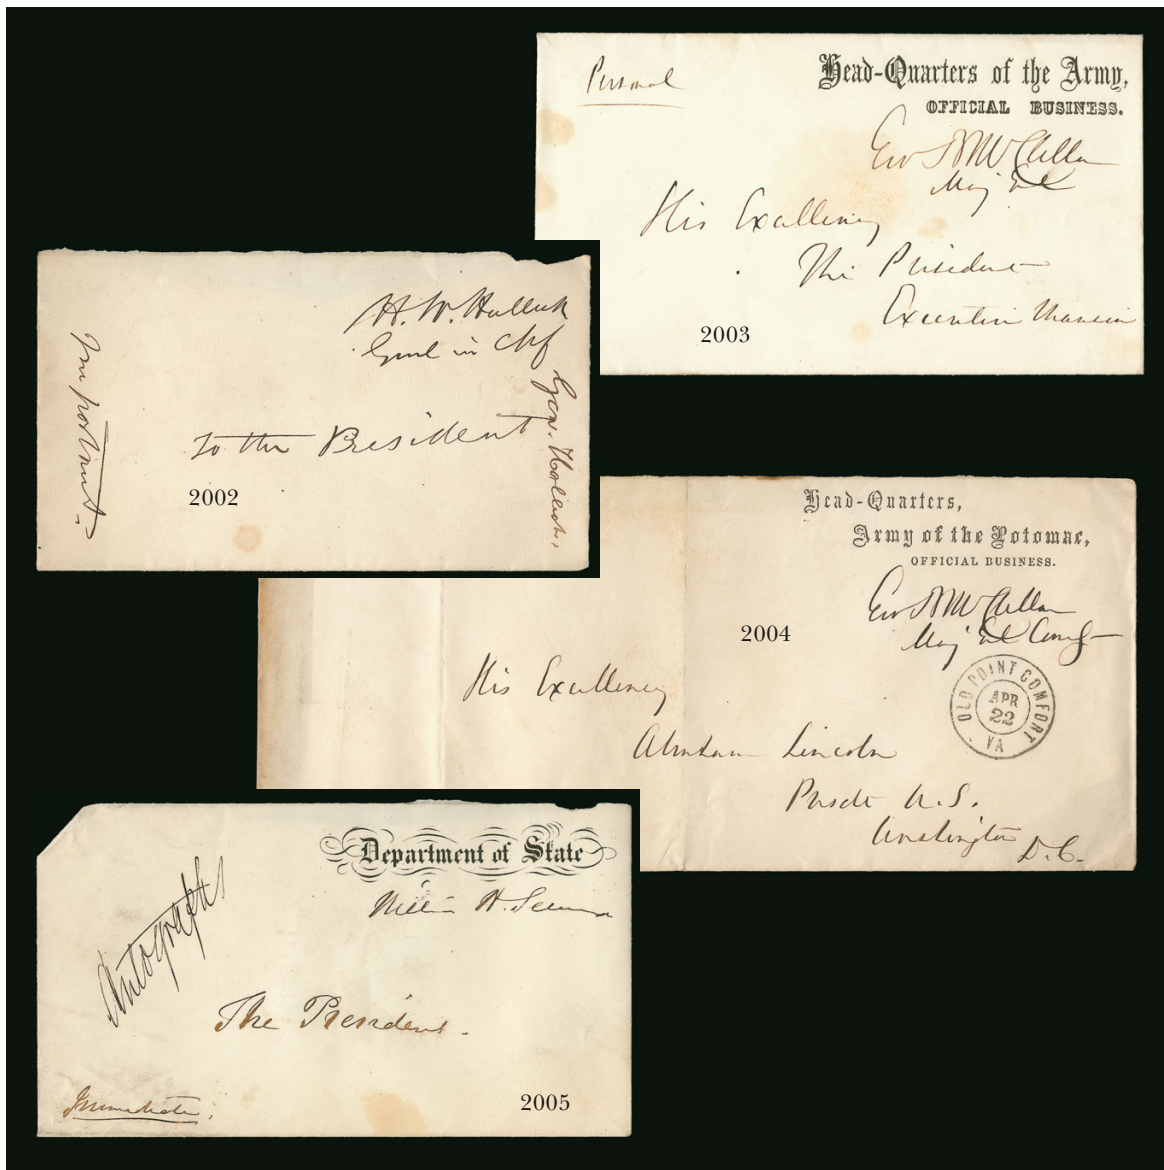 Personal
Head-Quarters of the Army,
OFFICIAL BUSINESS.
Geo B McClellan
Maj Genl
His Excellency
The President
Executive Mansion
2003
H. W. Halleck
Genl in Chf
Important.
Gen. Halleck.
To the President
2002
Head-Quarters,
Army of the Potomac,
OFFICIAL BUSINESS.
Geo B McClellan
Maj Genl Comdg
2004
OLD POINT COMFORT
APR
22
VA
His Excellency
Abraham Lincoln
Presdt U.S.
Washington
D.C.
Department of State
William H. Seward
Autograph
The President.
Immediate.
2005